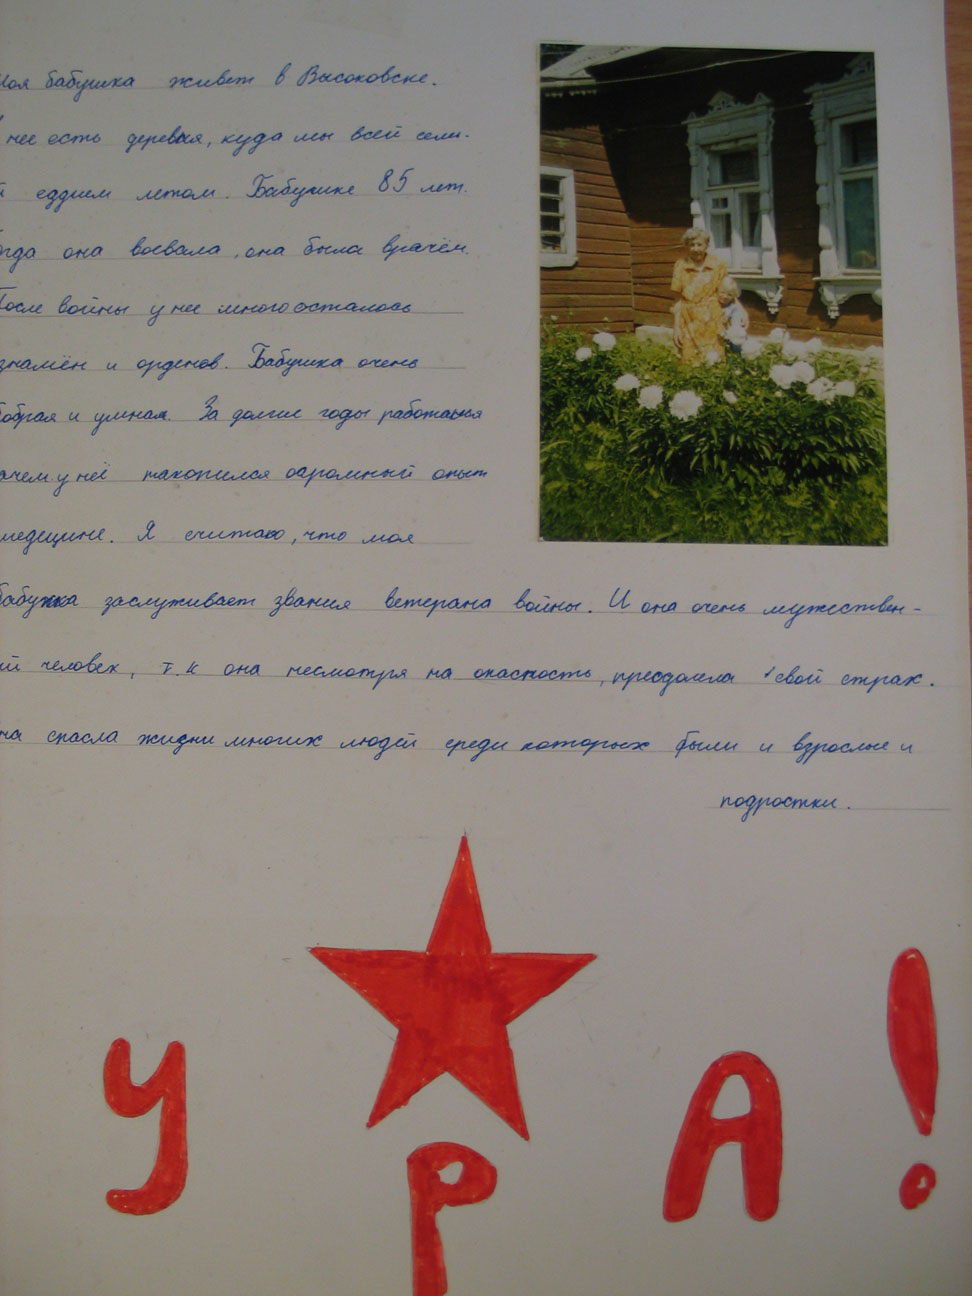 Моя бабушка живет в Высоковске.
У нее есть деревня, куда мы всей семь-
й еддием летом. Бабушке 85 лет.
огда она воевала, она была врачём.
После войны у нее много осталось
знамён и орденов. Бабушка очень
обрая и умная. За долгие годы работанья
ачем у неё накопился огромный опыт
медецине. Я считаю, что моя
бабушка заслуживает звания ветерана войны. И она очень мужествен-
ый человек, т.к она несмотря на опастность, преодолела свой страх.
на спасла жизни многих людей среди которых были и взрослые и
подростки.
УРА!